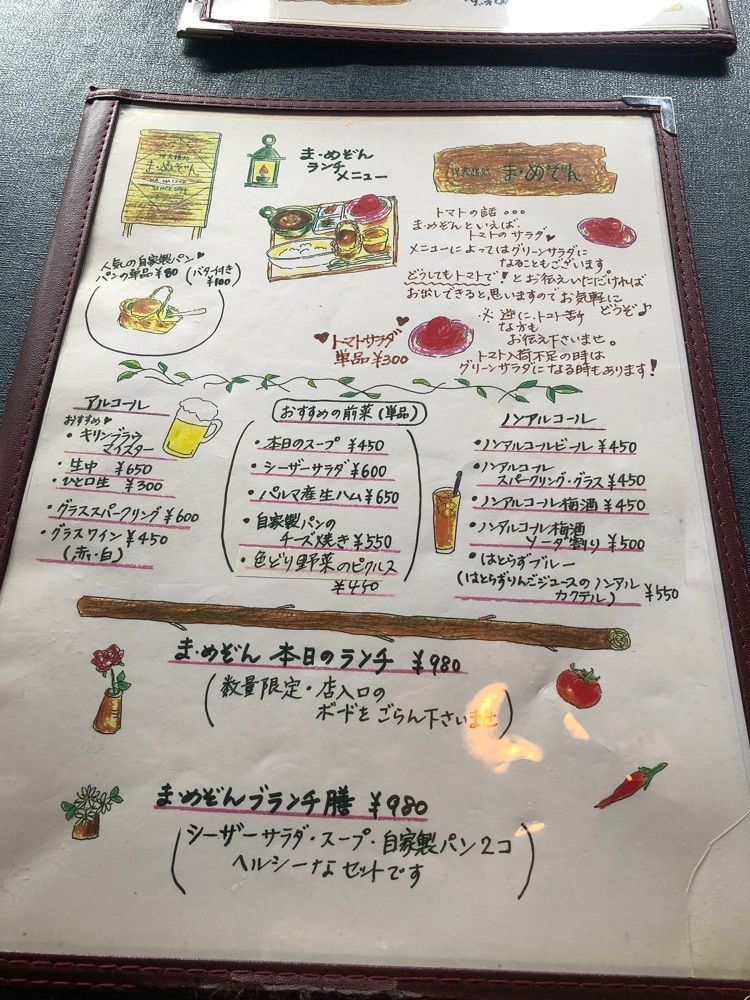 ま・めぞん
ま・めぞん
ランチ
メニュー
ま・めぞん
トマトの話。。。
ま・めぞんといえば、
トマトのサラダ♥
メニューによってはグリーンサラダに
なることもございます
どうしてもトマトで!とお伝えいただければ
お出しできると思いますのでお気軽に
どうぞ♪
※逆に、トマト苦手
な方も
お伝え下さいませ。
トマト入荷不足の時は
グリーンサラダになる時もあります!
人気の自家製パン♥
パンの単品¥80
(バター付き
¥100)
トマトサラダ
単品¥300
アルコール
おすすめ♥
・キリンブラウ
マイスター
・生中 ¥650
・ひと口生 ¥300
・グラススパークリング ¥600
・グラスワイン ¥450
(赤・白)
おすすめの前菜(単品)
・本日のスープ ¥450
・シーザーサラダ ¥600
・パルマ産生ハム ¥650
・自家製パンの
チーズ焼き ¥550
・色どり野菜のピクルス
¥450
ノンアルコール
・ノンアルコールビール ¥450
・ノンアルコール
スパークリング・グラス ¥450
・ノンアルコール梅酒 ¥450
・ノンアルコール梅酒
ソーダ割り ¥500
・はとらずブルー
(はとらずりんごジュースのノンアル
カクテル) ¥550
ま・めぞん 本日のランチ ¥980
(数量限定・店入口の
ボードをごらん下さいませ)
ま・めぞんブランチ膳 ¥980
(シーザーサラダ・スープ・自家製パン2コ
ヘルシーなセットです)